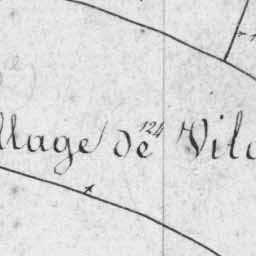 124
llage de Vil